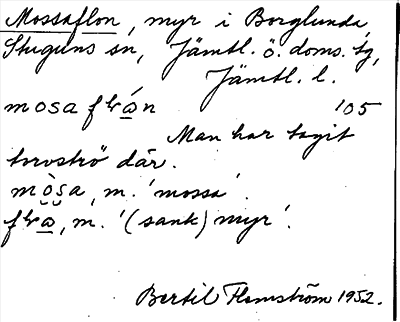 Mossaflon, myr i Borglunda,
Stuguns sn, Jämtl. ö. doms. tg,
Jämtl. l.
mosa flǫ́n 105
Man har tagit
torvströ där.
mòsa, m. 'mossa'.
m. '(sank) myr'.
Bertil Flemström 1952.